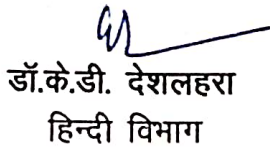 डॉ.के.डी. देशलहरा
हिन्दी विभाग